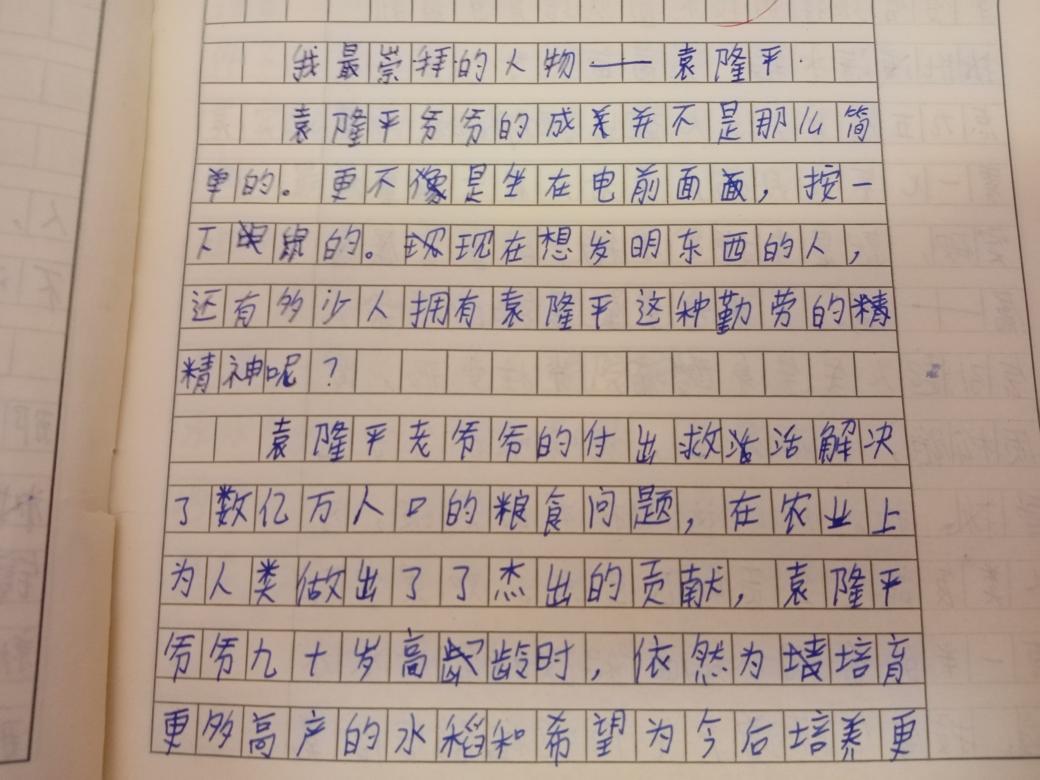 我最崇拜的人物——袁隆平
袁隆平爷爷的成关并不是那么简
单的。更不像是坐在电前面面，按一
下的。现现在想发明东西的人，
还有多少人拥有袁隆平这种勤劳的精
精神呢？
袁隆平老爷爷的付出救活活解决
了数亿万人口的粮食问题，在农业上
为人类做出了了杰出的贡献，袁隆平
爷爷九十岁高龄时，依然为培育
更多高产的水稻和希望为今后培养更